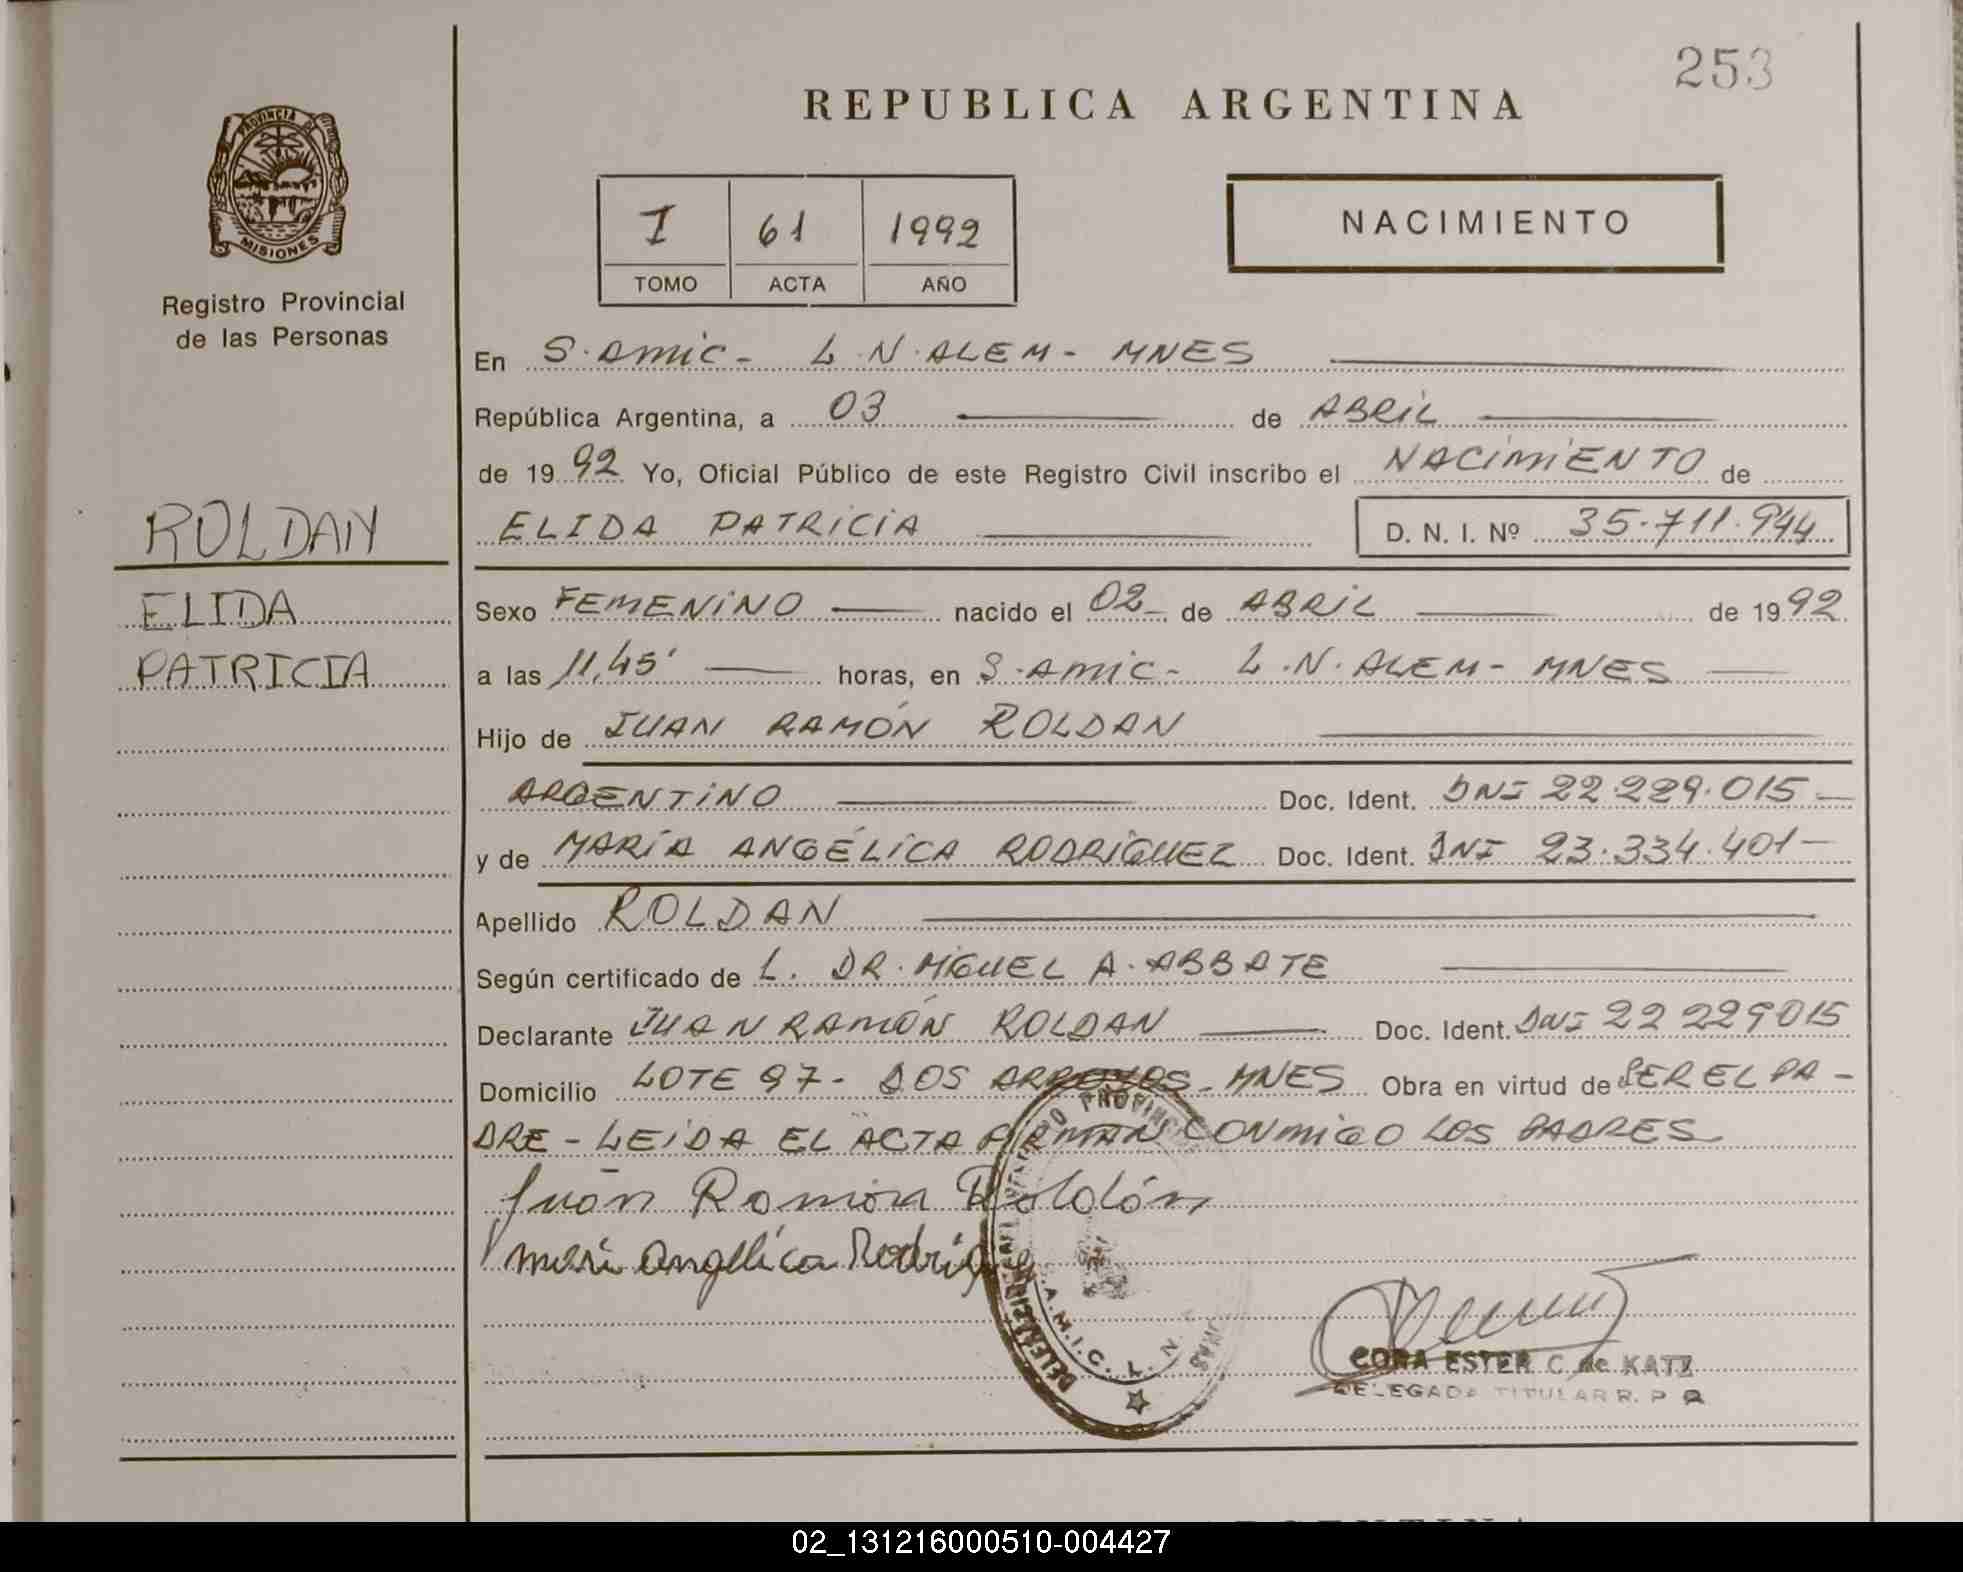 253
REPUBLICA ARGENTINA
PROVINCIA DE
MISIONES
Registro Provincial
de las Personas
I 61 1992
TOMO ACTA AÑO
NACIMIENTO
En S. AMIC - L. N. ALEM - MNES
República Argentina, a 03 de ABRIL
de 19 92 Yo, Oficial Público de este Registro Civil inscribo el NACIMIENTO de
ELIDA PATRICIA D. N. I. Nº 35.711.944
ROLDAN
ELIDA
PATRICIA
Sexo FEMENINO nacido el 02 de ABRIL de 19 92
a las 11,45' horas, en S. AMIC - L. N. ALEM - MNES
Hijo de JUAN RAMÓN ROLDAN
ARGENTINO Doc. Ident. DNI 22.229.015
y de MARÍA ANGÉLICA RODRÍGUEZ Doc. Ident. DNI 23.334.401
Apellido ROLDAN
Según certificado de L. DR. MIGUEL A. ABBATE
Declarante JUAN RAMÓN ROLDAN Doc. Ident. DNI 22 229015
Domicilio LOTE 97 - DOS ARROYOS - MNES Obra en virtud de SER EL PA-
DRE - LEÍDA EL ACTA FIRMAN CONMIGO LOS PADRES
Juán Ramón Roldán
Angélica
A.M.I.C. L. N.
CORA ESTER C. de KATZ
DELEGADA TITULAR R. P.
02_131216000510-004427